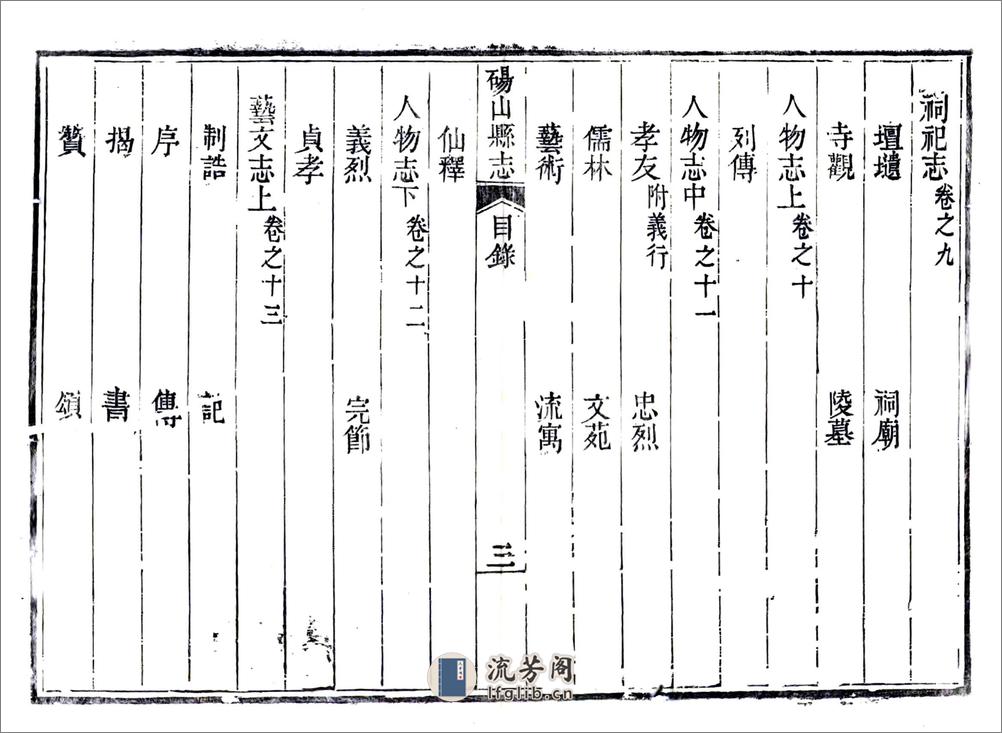 祠祀志卷之九
壇壝 祠廟
寺觀 陵墓
人物志上卷之十
列傳
人物志中卷之十一
孝友附義行 忠烈
儒林 文苑
藝術 流寓
碭山縣志 目錄 三
仙釋
人物志下卷之十二
義烈 完節
貞孝
藝文志上卷之十三
制誥 記
序 傳
揭 書
贊 頌
流芳阁
lfglib.cn